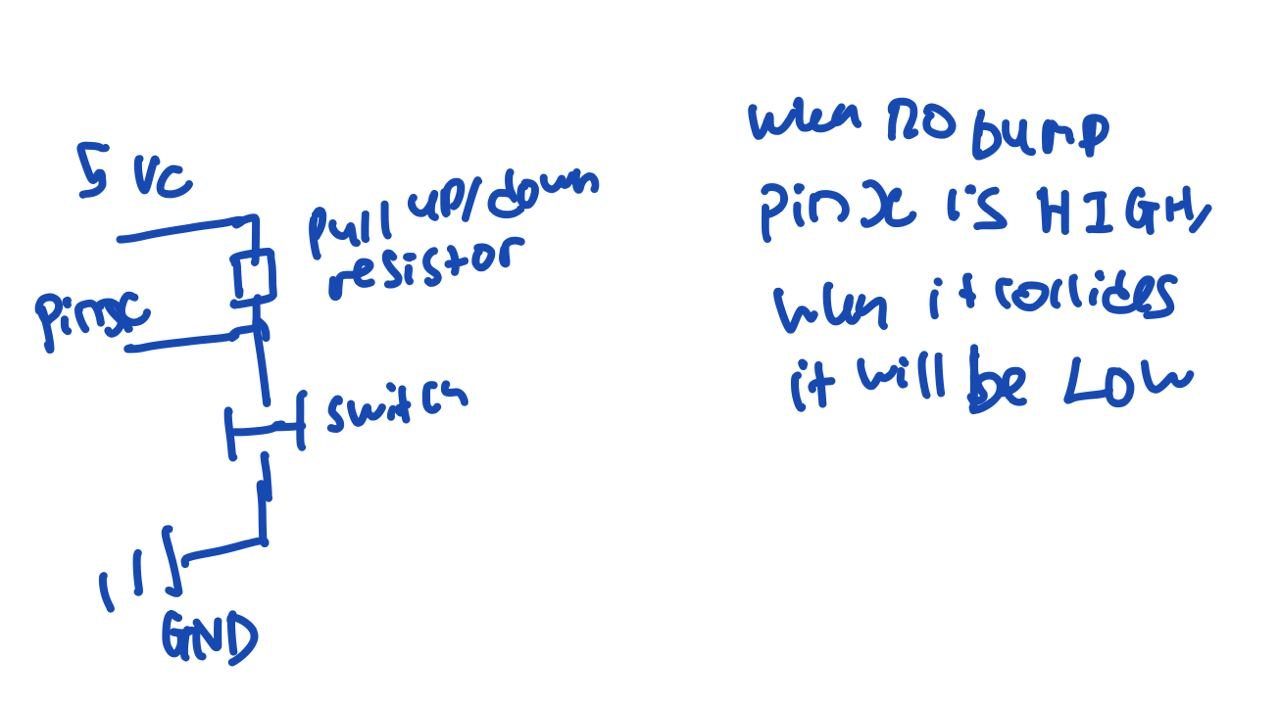 5 VC
pull up/down
resistor
Pinx
switch
GND
when no bump
pin x is HIGH,
when it collides
it will be LOW